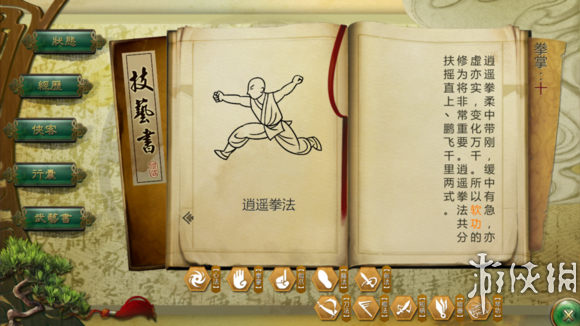 狀態
經歷
俠客
行囊
技藝書
技藝書
逍遥拳法
拳掌:十
逍遥拳柔中带刚,缓中有急,亦
虚亦实,变化万千。所以软功的
修为将非常重要。逍遥拳法共分
扶摇直上、鹏飞千里两式。
游侠网